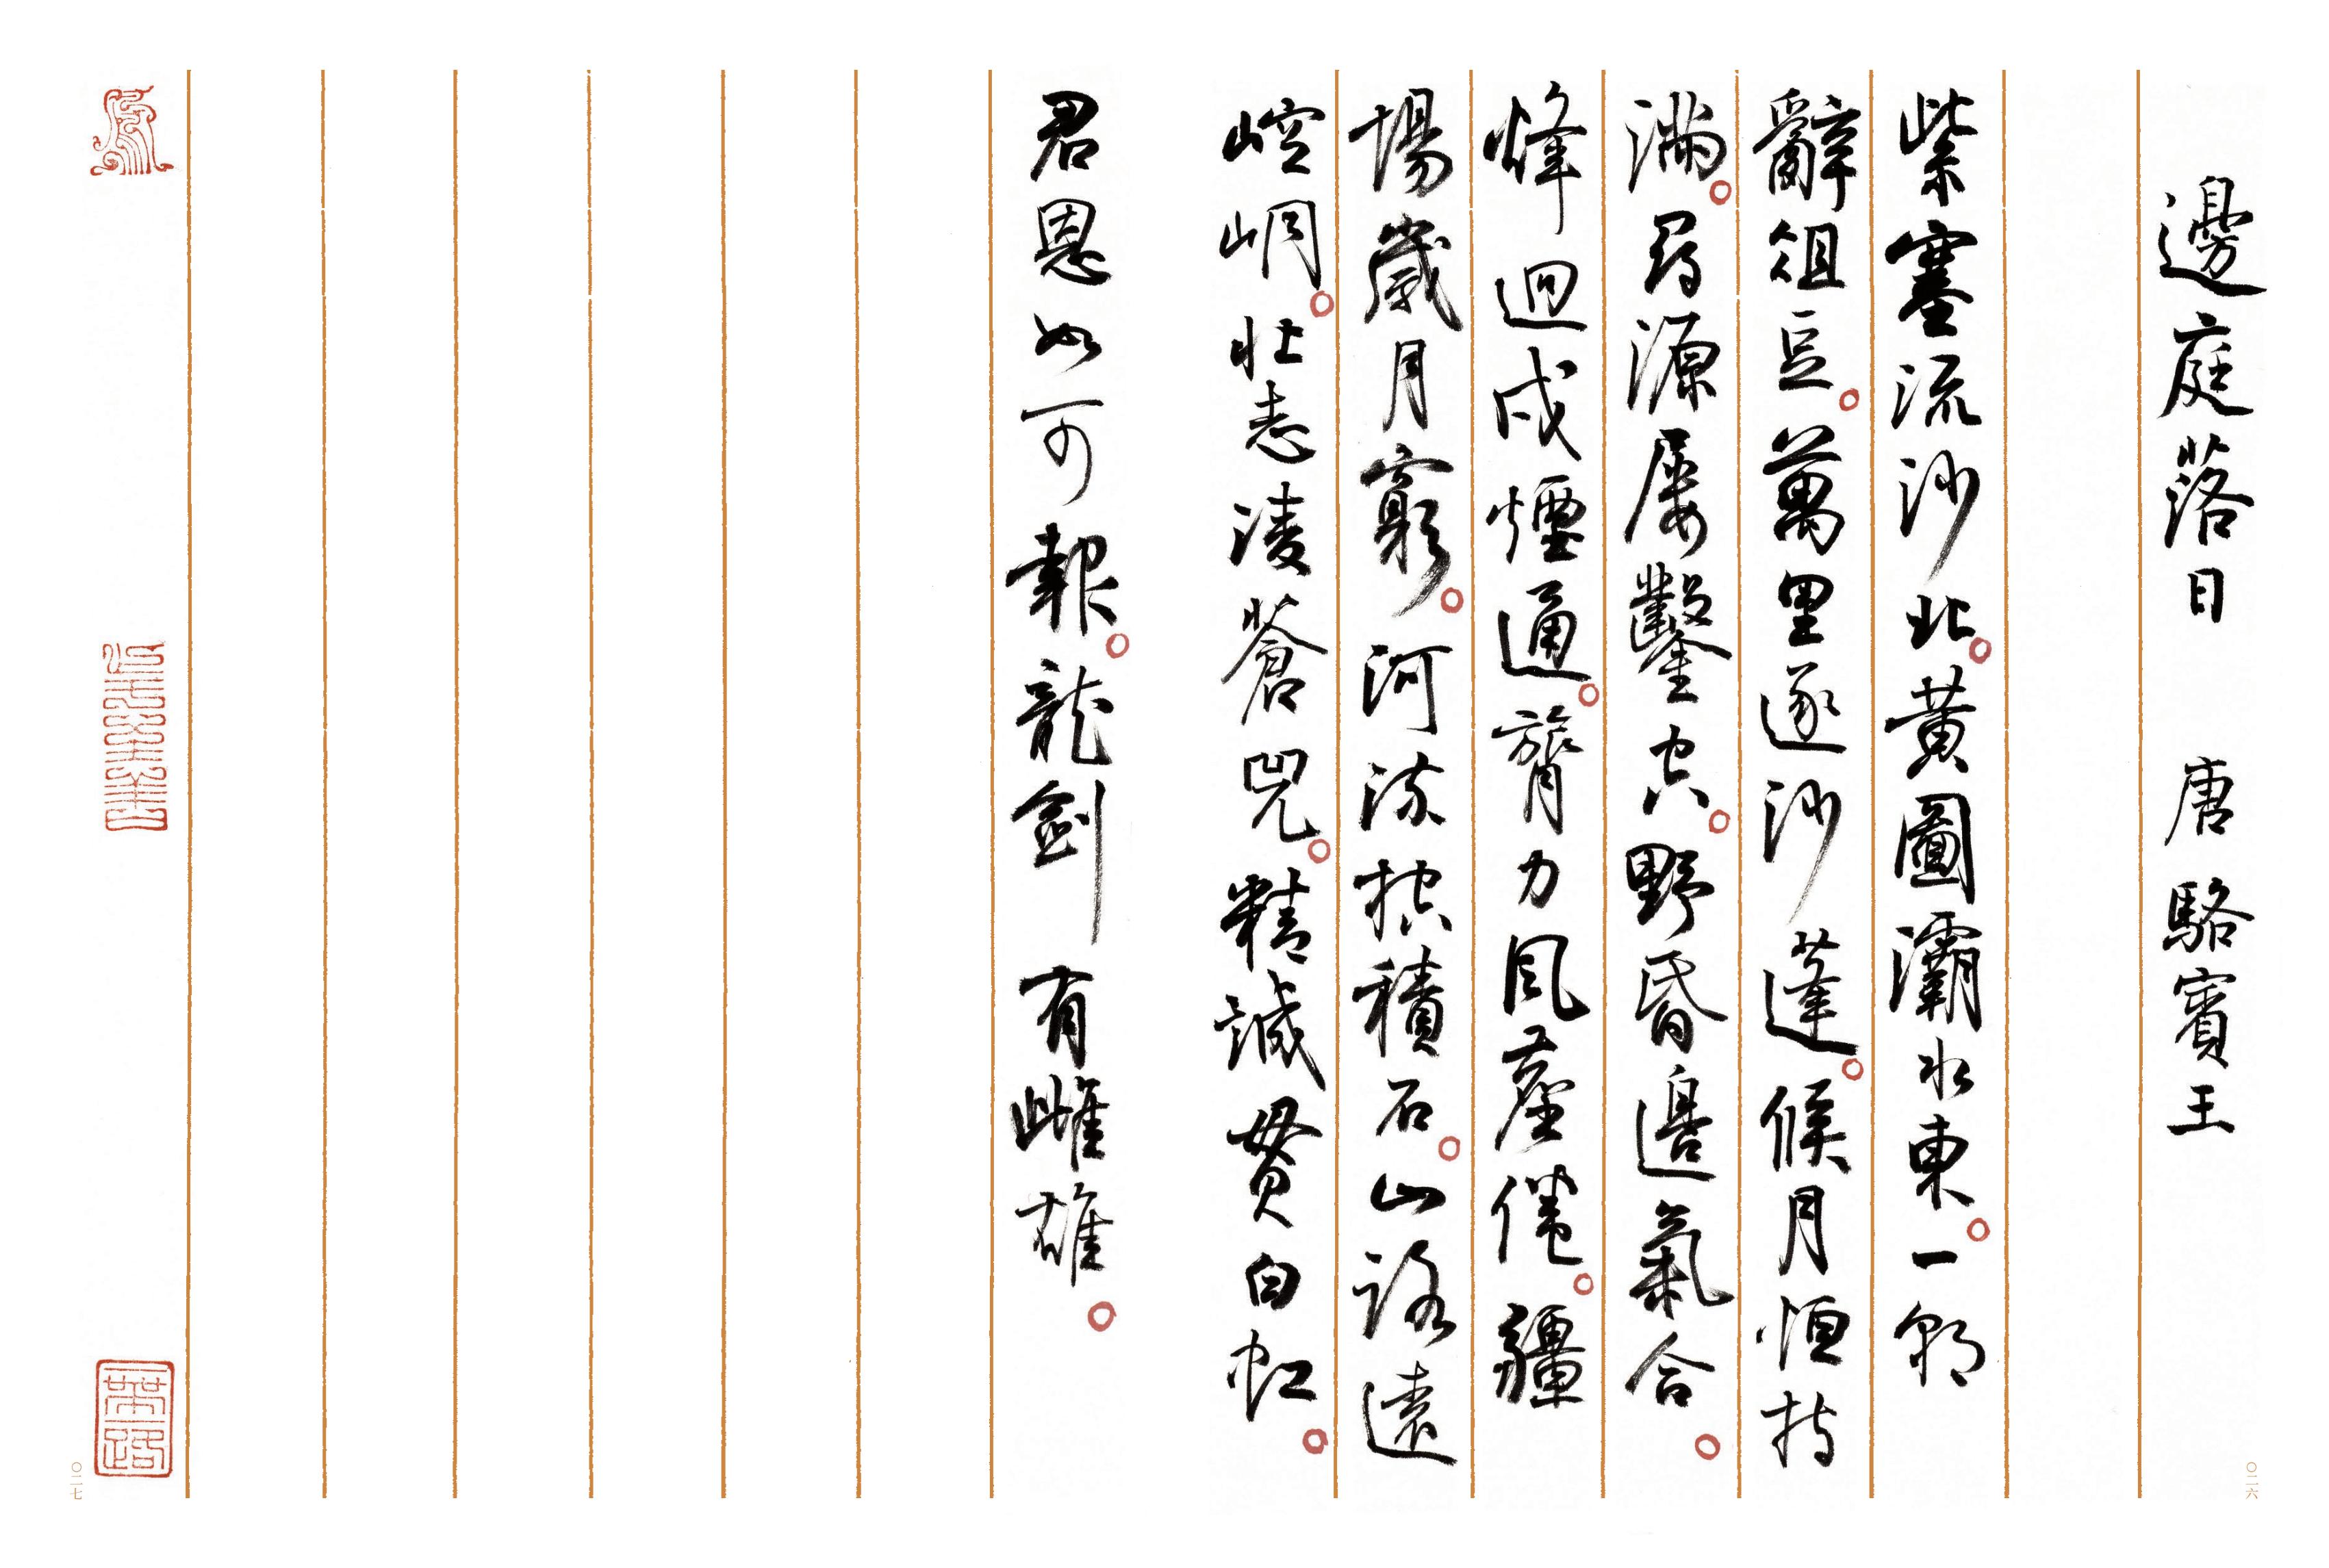 邊庭落日 唐 駱賓王
紫塞流沙北。黃圖灞水東。一朝
辭俎豆。萬里逐沙蓬。候月恒持
滿。尋源屢鑿空。野昏邊氣合。
烽迥戍煙通。膂力風塵倦。疆
場歲月窮。河流控積石。山路遠
崆峒。壯志凌蒼兕。精誠貫白虹。
君恩如可報。龍劍有雌雄。
〇二六
〇二七